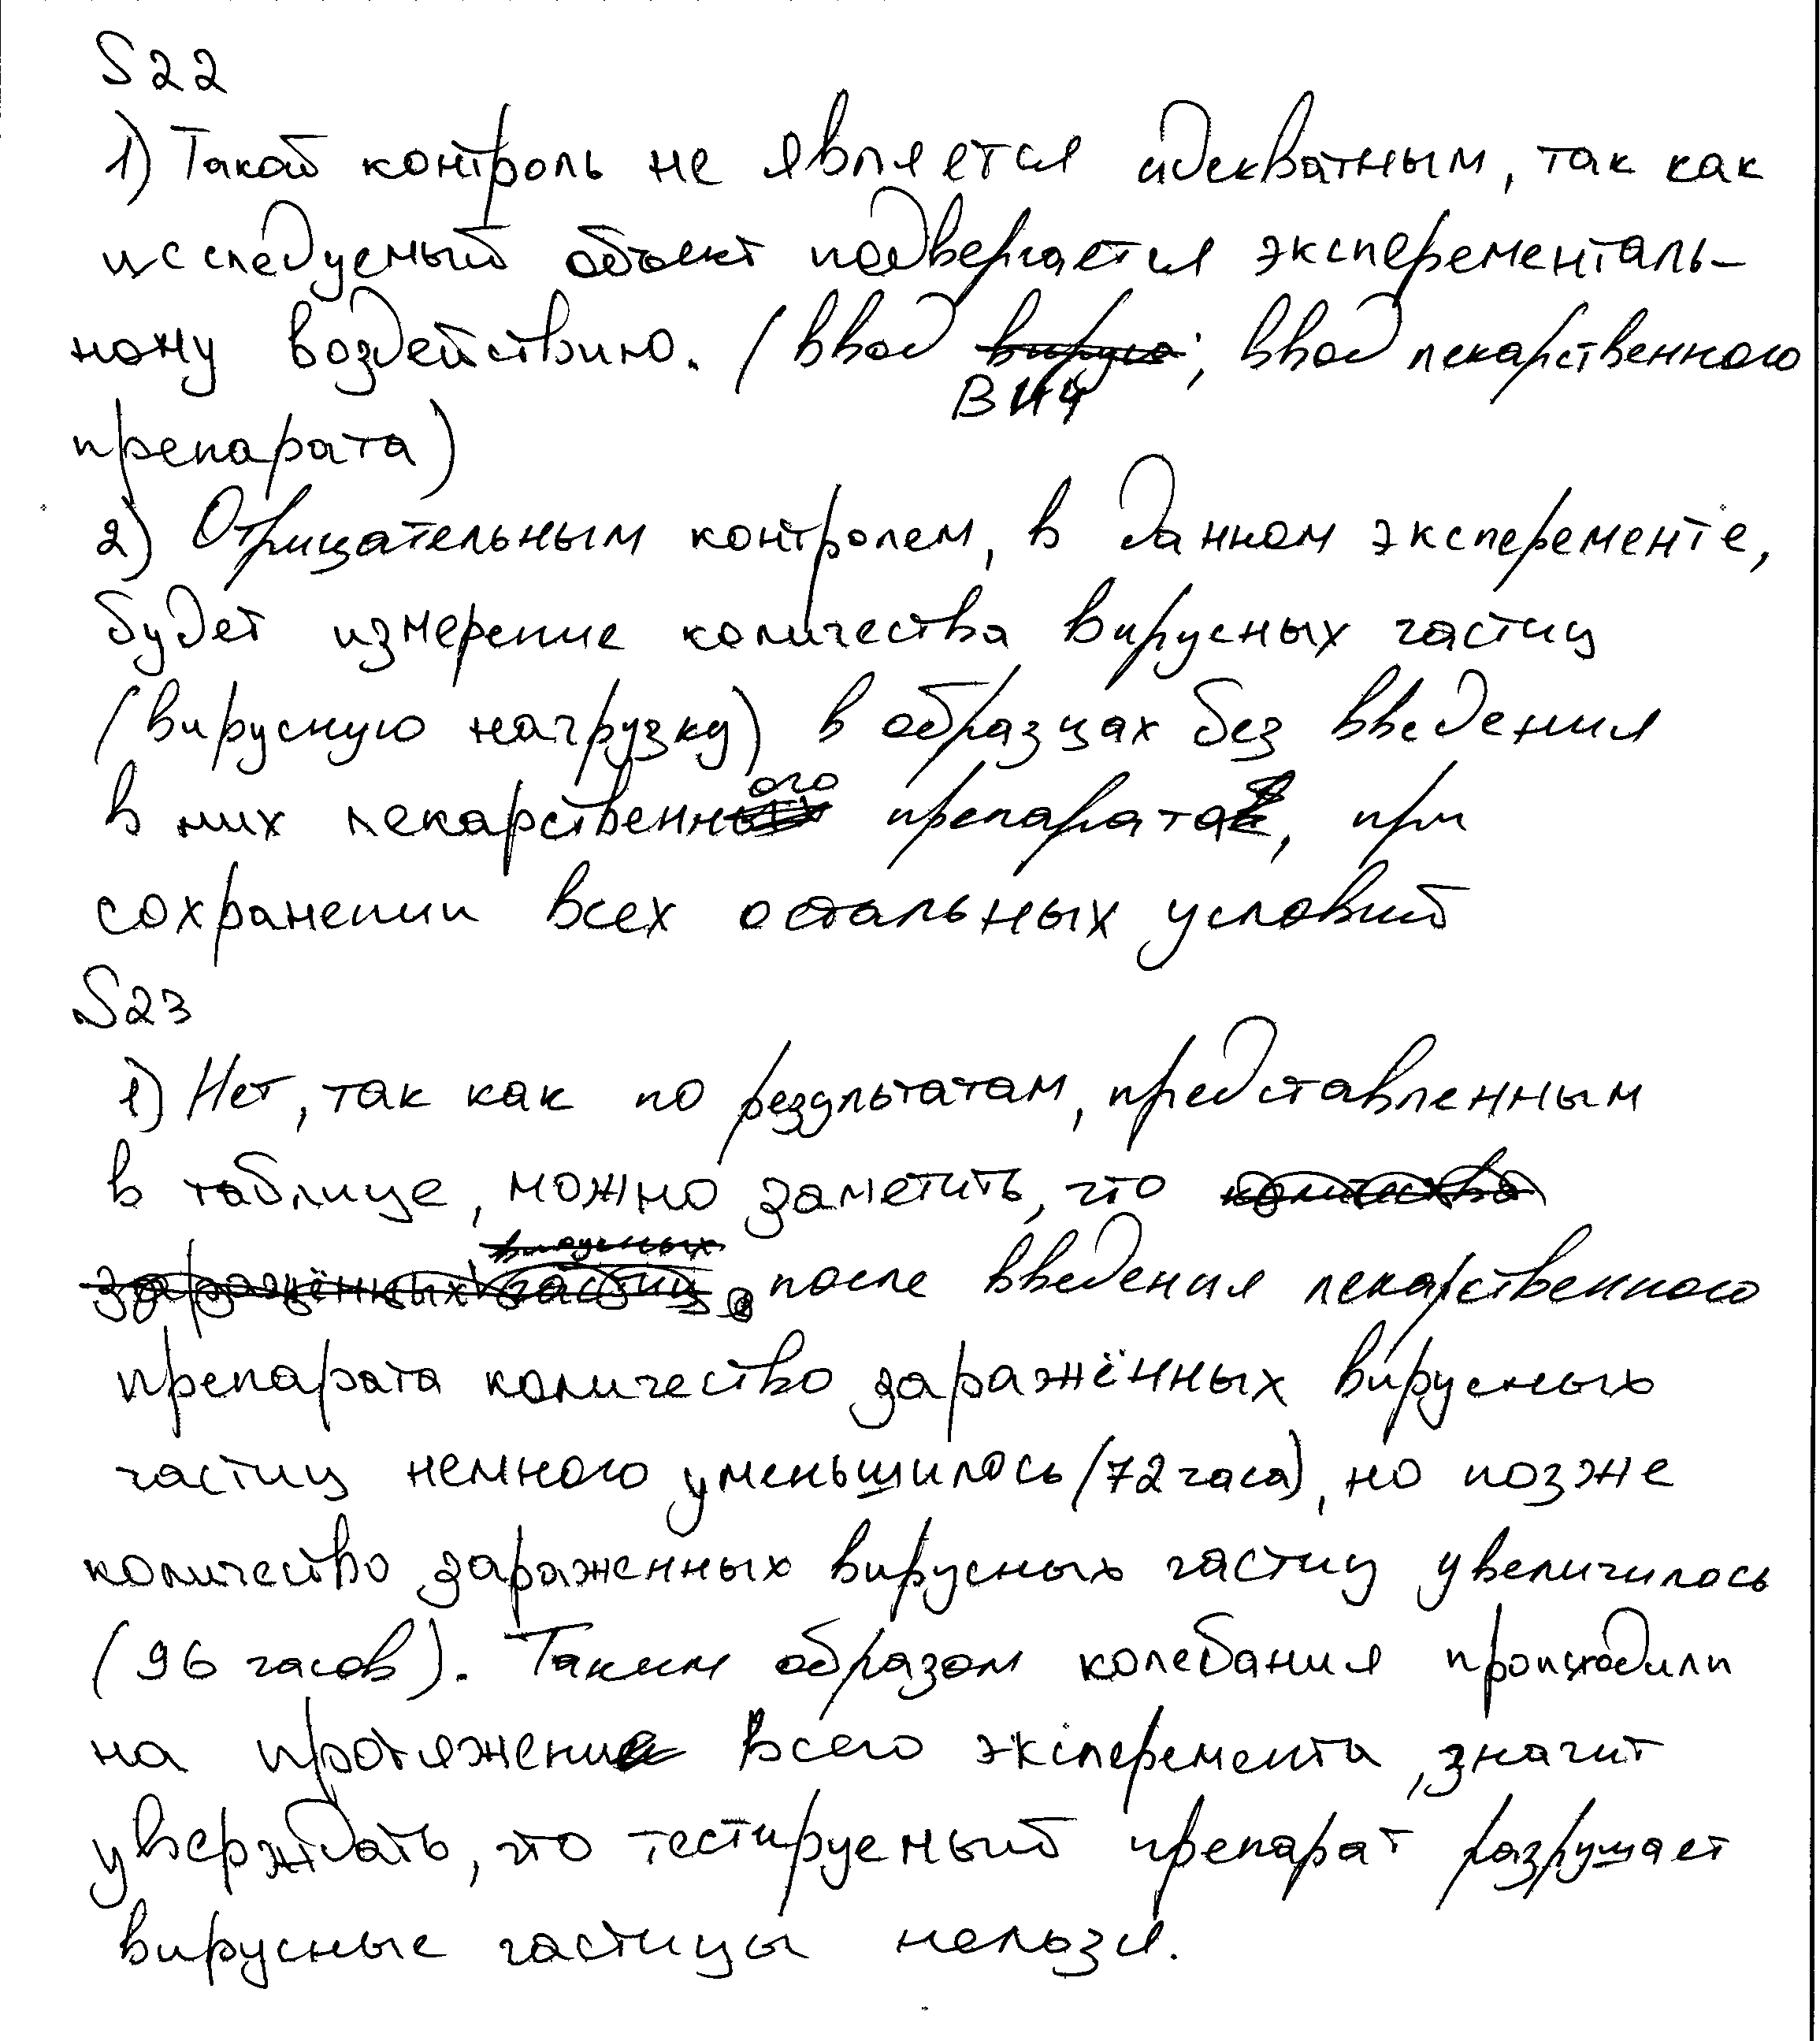 S22
1) Такой контроль не является адекватным, так как
исследуемый объект подвергается эксперементаль-
ному воздействию. (ввод ВИЧ; ввод лекарственного
препарата)
2) Отрицательным контролем, в данном эксперементе,
будет измерение количества вирусных частиц
(вирусную нагрузку) в образцах без введения
в них лекарственного препарата, при
сохранении всех остальных условий
S23
1) Нет, так как по результатам, представленным
в таблице, можно заметить, что
после введения лекарственного
препарата количество заражённых вирусных
частиц немного уменьшилось (72 часа), но позже
количество зараженных вирусных частиц увеличилось
(96 часов). Таким образом колебания происходили
на протяжении всего эксперемента, значит
утверждать, что тестируемый препарат разрушает
вирусные частицы нельзя.